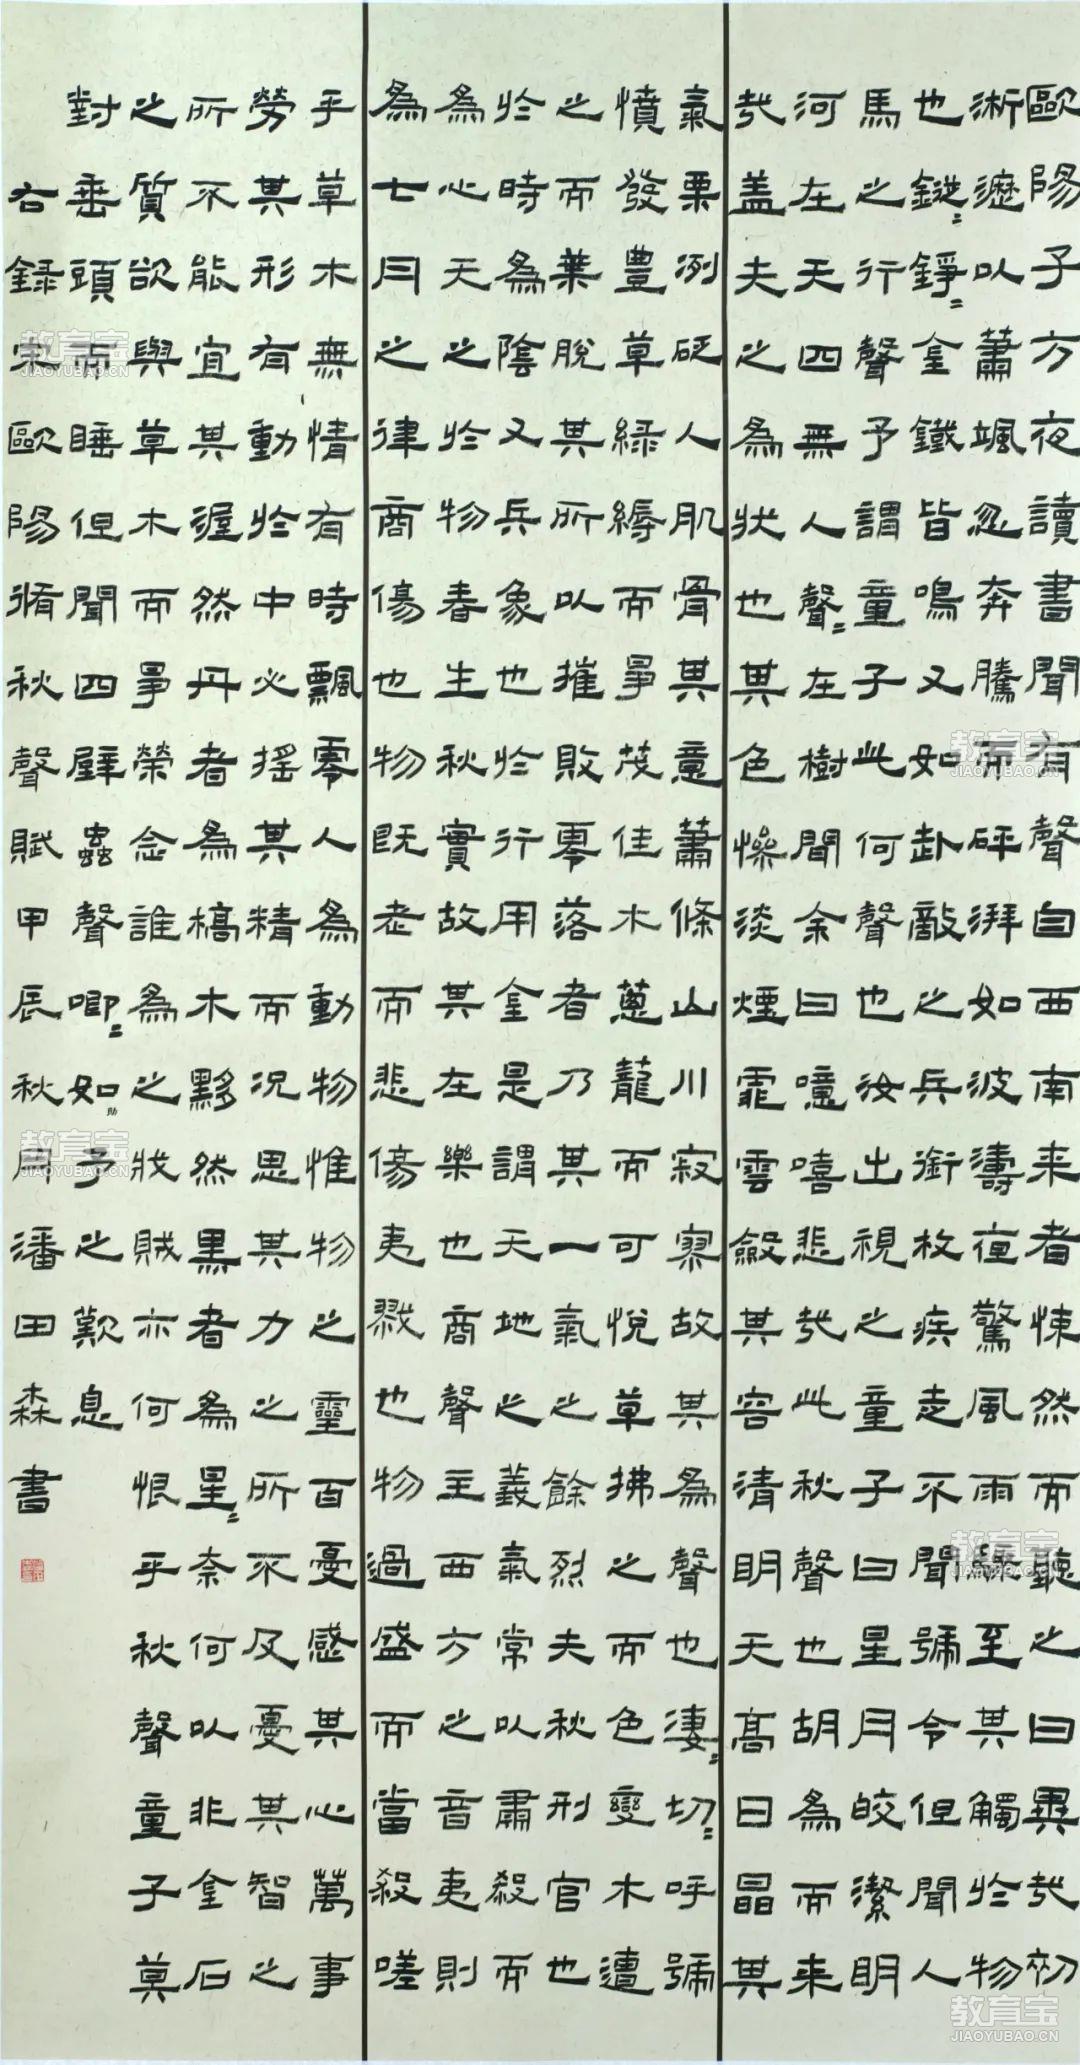 歐陽子方夜讀書聞有聲自西南来者悚然而聽之曰異哉初
淅瀝以蕭颯忽奔騰而砰湃如波濤夜驚風雨驟至其觸於物
也鏦〻錚〻金鐵皆鳴又如赴敵之兵銜枚疾走不聞號令但聞人
馬之行聲予謂童子此何聲也汝出視之童子曰星月皎潔明
河在天四無人聲〻在樹間余曰噫嘻悲哉此秋聲也胡為而来
哉盖夫之為狀也其色惨淡煙霏雲斂其容清明天高日晶其
氣栗冽砭人肌骨其意蕭條山川寂寥故其為聲也淒〻切〻呼號
憤發豐草緑縟而爭茂佳木蔥蘢而可悅草拂之而色變木遭
之而葉脫其所以摧敗零落者乃其一氣之餘烈夫秋刑官也
於時為陰又兵象也於行用金是謂天地之義氣常以肅殺而
為心天之於物春生秋實故其在樂也商聲主西方之音夷則
為七月之律商傷也物既老而悲傷夷戮也物過盛而當殺嗟
乎草木無情有時飄零人為動物惟物之靈百憂感其心萬事
勞其形有動於中必搖其精而況思其力之所不及憂其智之
所不能宜其渥然丹者為槁木黟然黑者為星〻奈何以非金石
之質欲與草木而爭榮念誰為之戕賊亦何恨乎秋聲童子莫
對垂頭而睡但聞四壁蟲聲唧〻如助予之歎息
右録宋歐陽脩秋聲賦甲辰秋月潘田森書
教育宝
JIAOYUBAO.CN
教育宝
JIAOYUBAO.CN
教育宝
JIAOYUBAO.CN
教育宝
JIAOYUBAO.CN
教育宝
JIAOYUBAO.CN